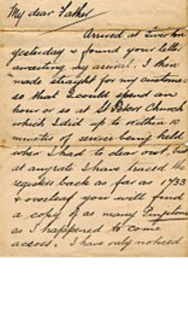 My dear Father
Arrived at Tiverton
yesterday & found your letter
awaiting my arrival. I then
made straight for my customer
so that I could spend an
hour or so at St Peters Church
which I did up to within 10
minutes of service being held
when I had to clear out, but
at anyrate I have traced the
registers back as far as 1733
& overleaf you will find
a copy of as many
as I happened to come
across. I have only noticed